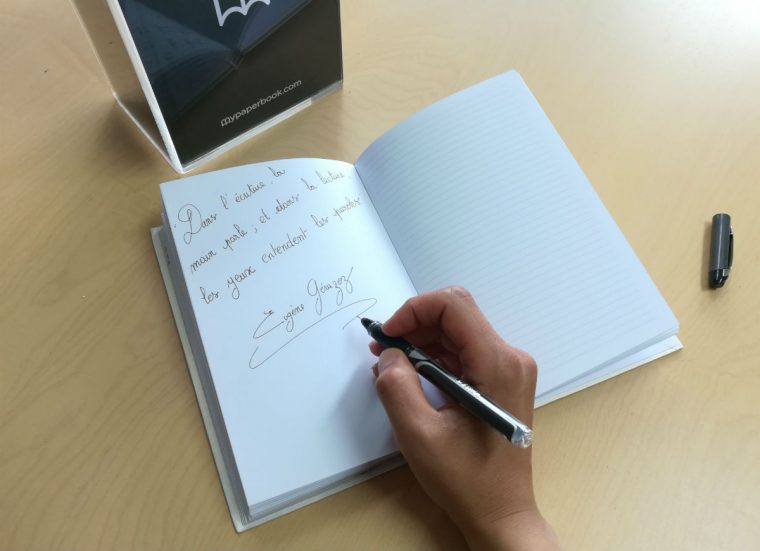 mypaperbook.com
Dans l'écriture, la
main parle ; et dans la lecture,
les yeux entendent les paroles
Eugène Géruzez